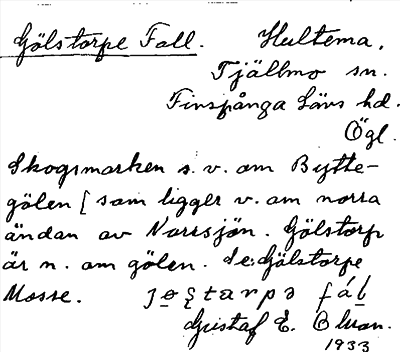 Gölstorpe Fall. Hultema,
Tjällmo sn.
Finspånga Läns hd.
Ögl.
Skogsmarken s.v. om Bytte-
gölen [som ligger v. om norra
ändan av Norrsjön. Gölstorp
är n. om gölen. Se: Gölstorpe
Mosse.
Gustaf E.
1933